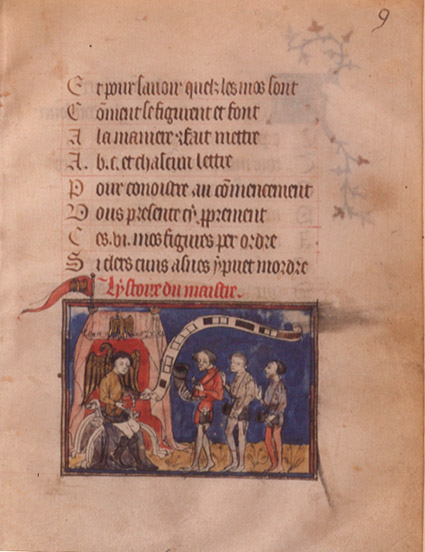 9
Et pour savoir quelz les mos sont
Cõment se figurent et font
A la maniere q̃ fait mettre
A. b. c. et chascun lettre
Pour conoistre au cõmencement
Vous presente cy ꝓprement
Ces .vi. mos figures per ordre
Si clers cuns asnes y puet mordre
Lystoire du maistre.